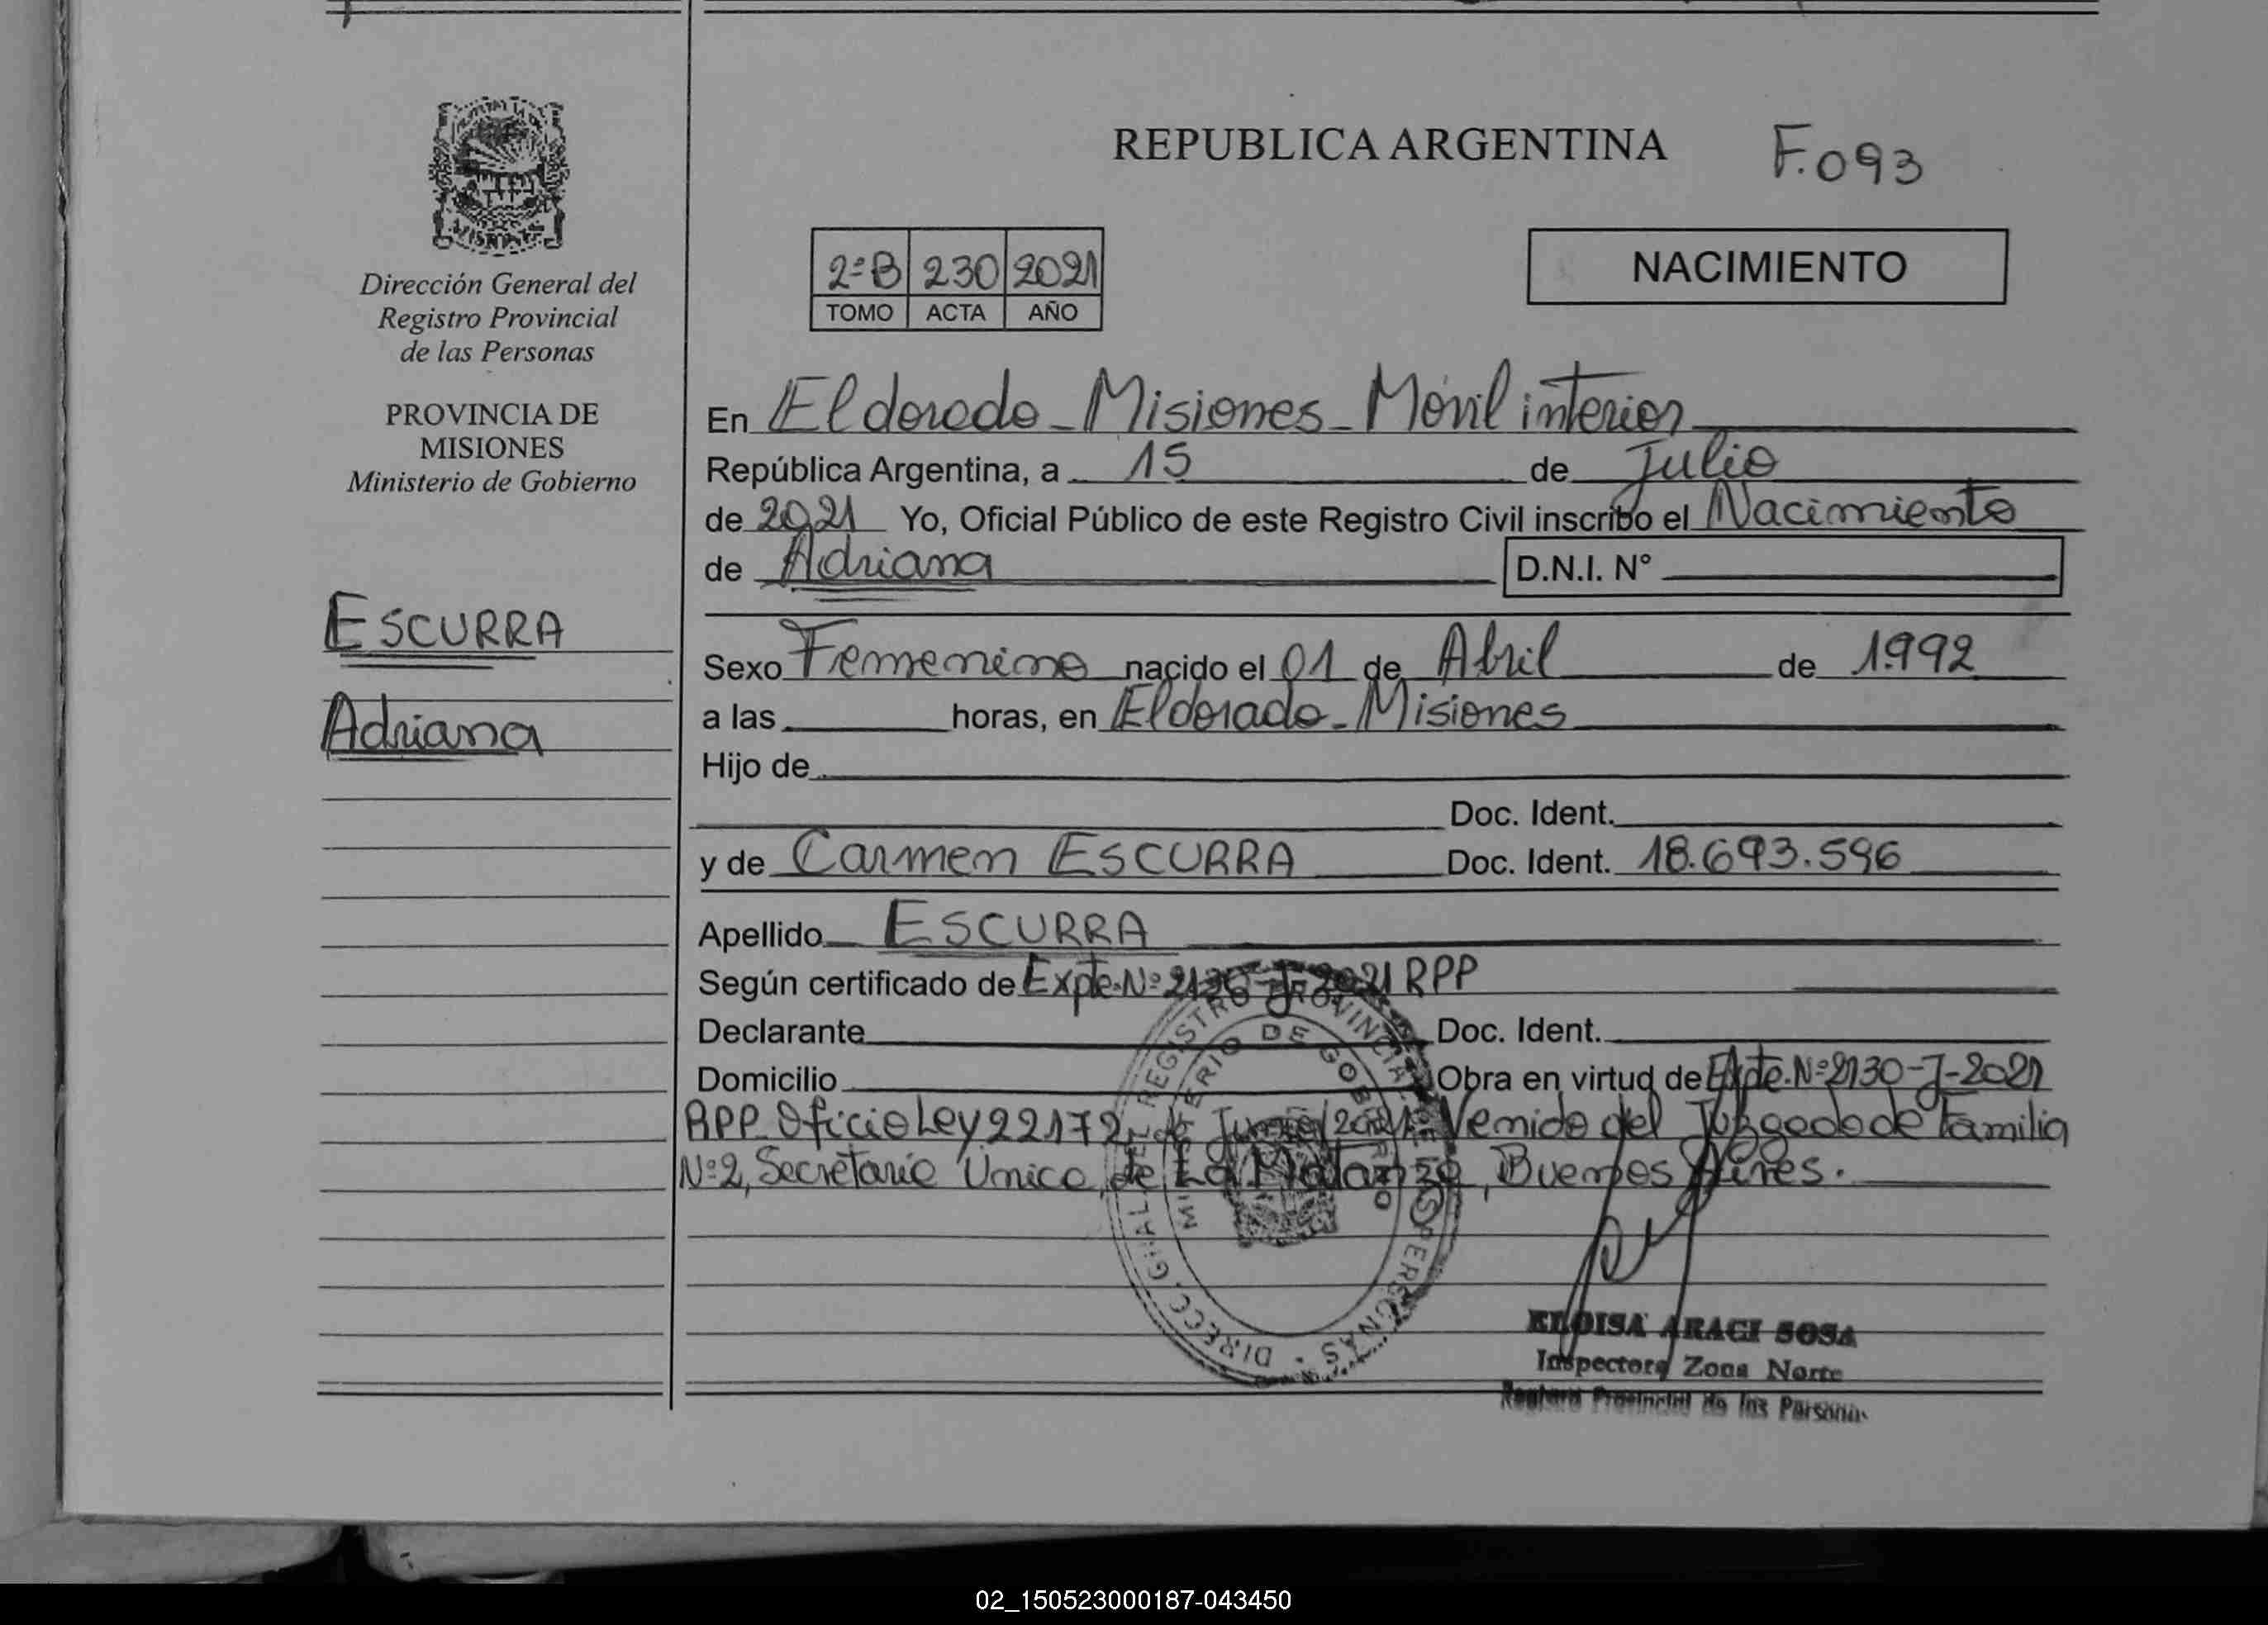 REPUBLICA ARGENTINA
F.093
MISIONES
Dirección General del
Registro Provincial
de las Personas
PROVINCIA DE
MISIONES
Ministerio de Gobierno
ESCURRA
Adriana
2ºB 230 2021
TOMO ACTA AÑO
NACIMIENTO
En Eldorado - Misiones - Móvil interior
República Argentina, a 15 de Julio
de 2021 Yo, Oficial Público de este Registro Civil inscribo el Nacimiento
de Adriana D.N.I. Nº
Sexo Femenino nacido el 01 de Abril de 1992
a las horas, en Eldorado - Misiones
Hijo de
Doc. Ident.
y de Carmen ESCURRA Doc. Ident. 18.693.596
Apellido ESCURRA
Según certificado de Expte. Nº 2130-J-2021 RPP
Declarante Doc. Ident.
Domicilio Obra en virtud de Expte. Nº 2130-J-2021
RPP. Oficio Ley 22172, de Junio/2021. Venido del Juzgado de Familia
Nº 2, Secretaría Única, de La Matanza, Buenos Aires.
DIRECC. GRAL. DEL REGISTRO PROVINCIAL DE LAS PERSONAS
MINISTERIO DE GOBIERNO
ELOISA ARACI SOSA
Inspectora Zona Norte
Registro Provincial de las Personas
02_150523000187-043450